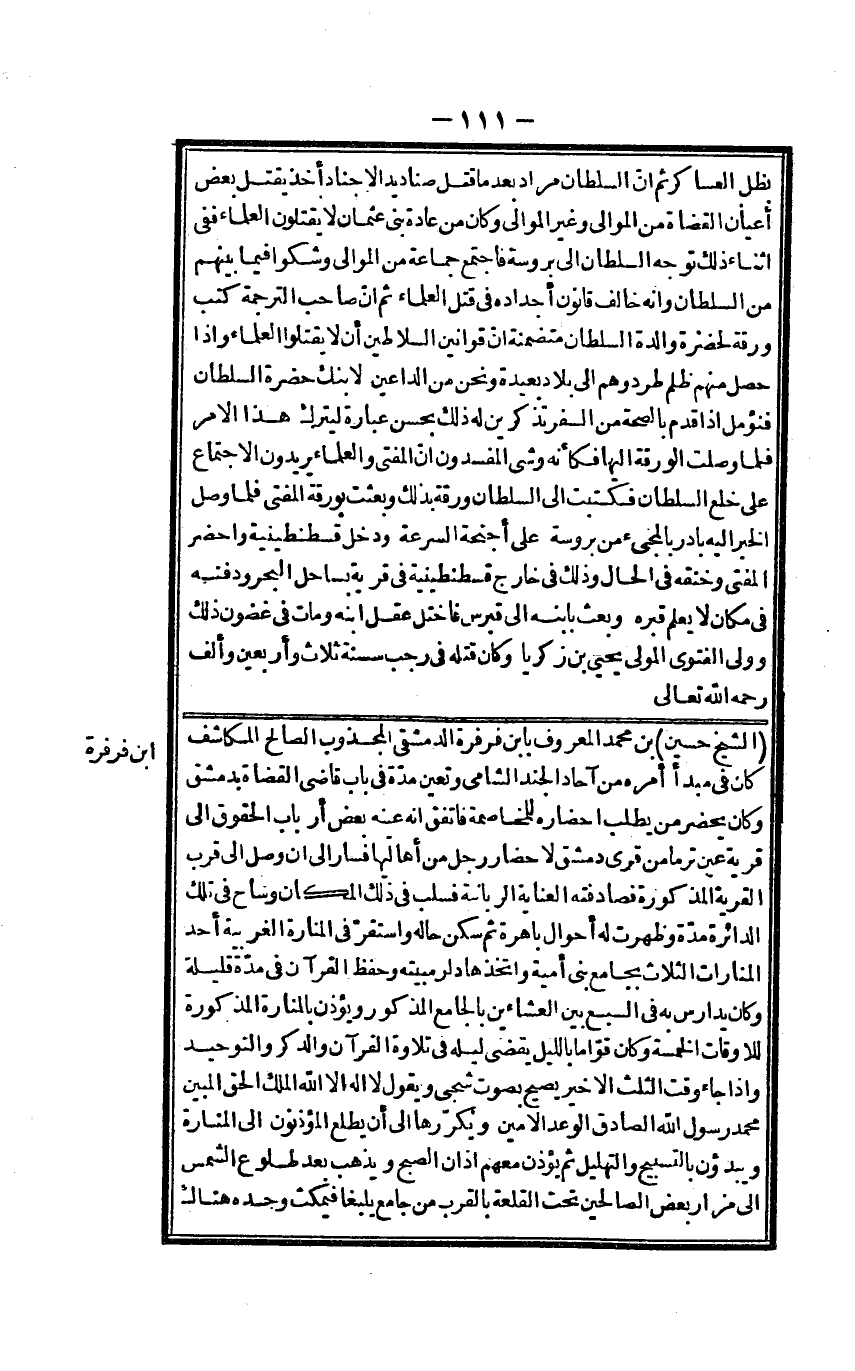 — ١١١ —
بظل العساكر ثم انّ السلطان مراد بعد ما قتل صناديد الاجناد أخذ يقتل بعض
أعيأن القضاة من الموالى وغير الموالى وكان من عادة بنى عثمان لا يقتلون العلماء ففى
اثناء ذلك توجه السلطان الى بروسة فاجتمع جماعة من الموالى وشكوا فيما بينهم
من السلطان وانه خالف قانون أجداده فى قتل العلماء ثم انّ صاحب الترجمة كتب
ورقة لحضرة والدة السلطان متضمنة انّ قوانين السلاطين أن لا يقتلوا العلماء واذا
حصل منهم ظلم طردوهم الى بلاد بعيدة ونحن من الداعين لابنك حضرة السلطان
فنؤمل اذا قدم بالصحة من السفر تذكرين له ذلك بحسن عبارة ليترك هذا الامر
فلما وصلت الورقة اليها فكأنه وشى المفسدون انّ المفتى والعلماء يريدون الاجتماع
على خلع السلطان فكتبت الى السلطان ورقة بذلك وبعثت بورقة المفتى فلما وصل
الخبر اليه بادر بالمجىء من بروسة على أجنحة السرعة ودخل قسطنطينية واحضر
المفتى وخنقه فى الحال وذلك فى خارج قسطنطينية فى قرية بساحل البحر ودفنه
فى مكان لا يعلم قبره وبعث بابنه الى قبرس فاختل عقل ابنه ومات فى غضون ذلك
وولى الفتوى المولى يحيى بن زكريا وكان قتله فى رجب سنة ثلاث وأربعين وألف
رحمه الله تعالى
ابن فرفرة
(الشيخ حسين) بن محمد المعروف بابن فرفرة الدمشقى المجذوب الصالح المكاشف
كان فى مبدأ أمره من آحاد الجند الشامى وتعين مدّة فى باب قاضى القضاة بدمشق
وكان يحضر من يطلب احضاره للمخاصمة فاتفق انه عنه بعض أرباب الحقوق الى
قرية عين ترما من قرى دمشق لاحضار رجل من أهالها فسار الى ان وصل الى قرب
القرية المذكورة فصادفته العناية الربانية فسلب فى ذلك المكان وساح فى تلك
الدائرة مدّة وظهرت له أحوال باهرة ثم سكن حاله واستقرّ فى المنارة الغربية أحد
المنارات الثلاث بجامع بنى أمية واتخذها دار مبيته وحفظ القرآن فى مدّة قليلة
وكان يدارس به فى السبع بين العشاءين بالجامع المذكور ويؤذن بالمنارة المذكورة
للاوقات الخمسة وكان قوّاما بالليل يقضى ليله فى تلاوة القرآن والذكر والتوحيد
واذا جاء وقت الثلث الاخير يصيح بصوت شجى ويقول لا اله الا الله الملك الحق المبين
محمد رسول الله الصادق الوعد الامين ويكرّرها الى أن يطلع المؤذنون الى المنارة
ويبدؤن بالتسبيح والتهليل ثم يؤذن معهم اذان الصبح ويذهب بعد طلوع الشمس
الى مزار بعض الصالحين تحت القلعة بالقرب من جامع يلبغا فيمكث وحده هنالك